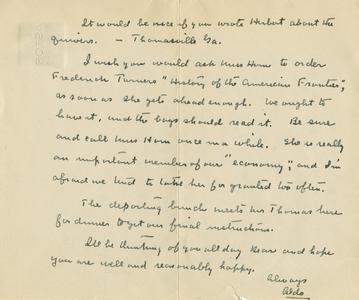 It would be nice if you wrote Herbert about the
quivers. — Thomasville Ga.
I wish you would ask Miss Horn to order
Frederick Turners "History of the American Frontier",
as soon as she gets ahead enough. We ought to
have it, and the boys should read it. Be sure
and call Miss Horn once in a while. She is really
an important member of our "economy", and I'm
afraid we tend to take her for granted too often.
The deporting bunch meets Mrs Thomas here
for dinner to get our final instructions.
I'll be thinking of you all day dear and hope
you are well and reasonably happy.
Always
Aldo